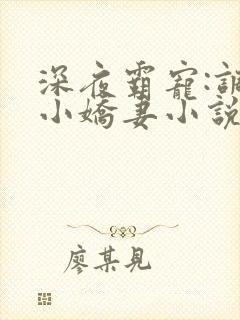 深夜霸寵:
小嬌妻小說
廖某見